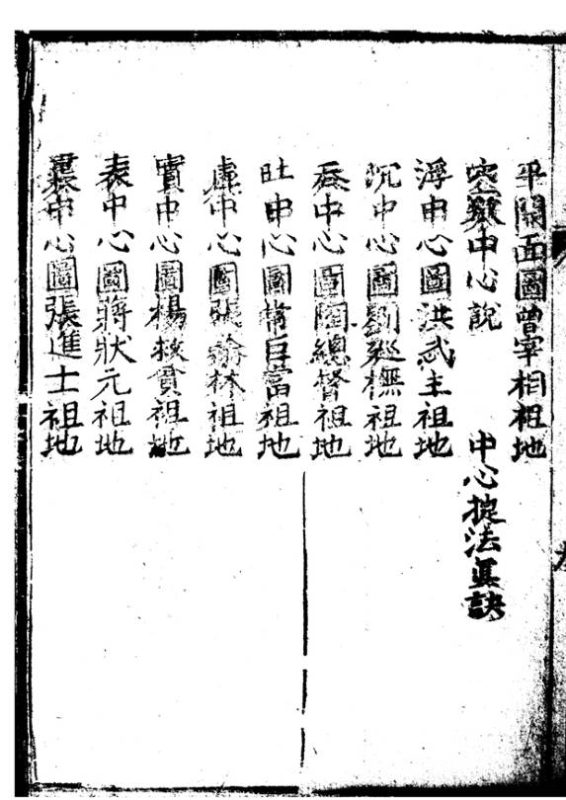 平開面圖曾宰相祖地
空數中心說　中心掟法真訣
浮中心圖洪武主祖地
沉中心圖劉巡撫祖地
吞中心圖陶總督祖地
吐中心圖常百富祖地
虛中心圖張翰林祖地
實中心圖楊救貧祖地
表中心圖蔣狀元祖地
裏中心圖張進士祖地